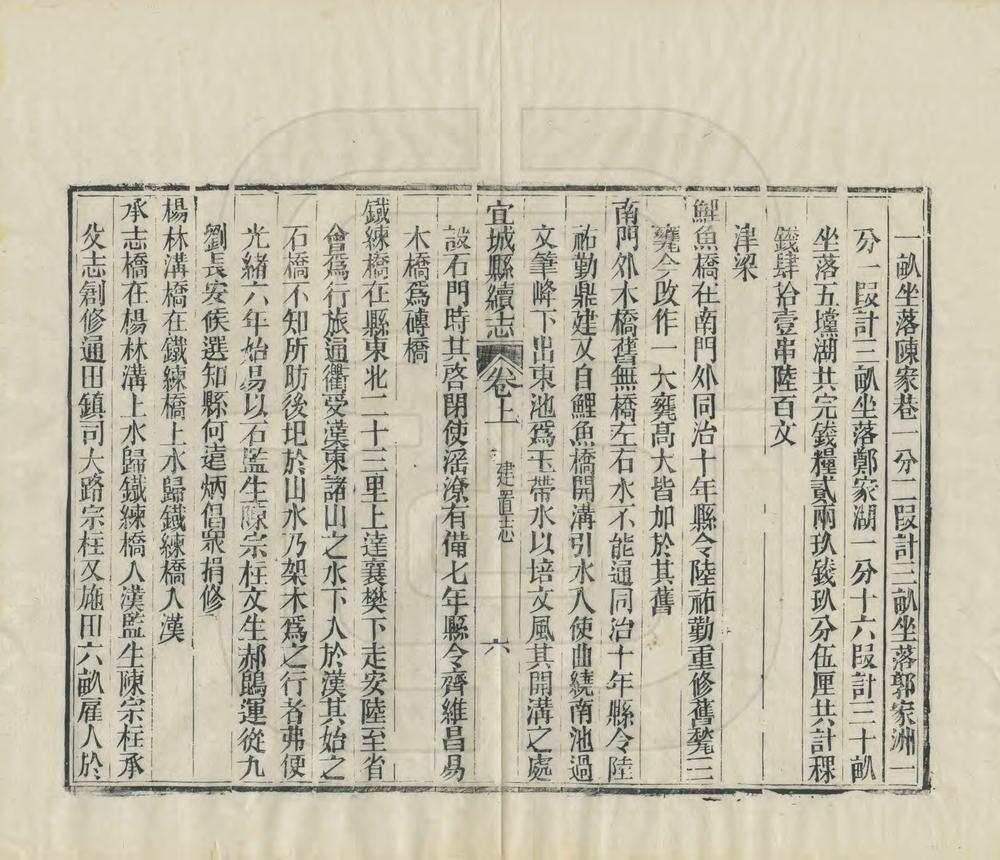 一畝坐落陳家巷一分二段計三畝坐落郭家洲一
分一段計三畝坐落鄭家湖一分十六段計三十畝
坐落五壋湖共完錢糧貳兩玖錢玖分伍厘共計稞
錢肆拾壹串陸百文
津梁
鯉魚橋在南門外同治十年縣令陸祐勤重修舊甃三
甕今改作一大甕高大皆加於其舊
南門外木橋舊無橋左右水不能通同治十年縣令陸
祐勤鼎建又自鯉魚橋開溝引水入使曲繞南池過
文筆峰下出東池爲玉帶水以培文風其開溝之處
宜城縣續志 卷上 建置志 六
設石門時其啓閉使滛潦有備七年縣令齊維昌易
木橋爲磚橋
鐵練橋在縣東北二十三里上達襄樊下走安陸至省
會爲行旅通衢受漢東諸山之水下入於漢其始之
石橋不知所昉後圯於山水乃架木爲之行者弗便
光緒六年始易以石監生陳宗枉文生郝鵾運從九
劉長安候選知縣何遠炳倡眾捐修
楊林溝橋在鐵練橋上水歸鐵練橋入漢
承志橋在楊林溝上水歸鐵練橋入漢監生陳宗枉承
父志創修通田鎮司大路宗枉又施田六畝雇人於